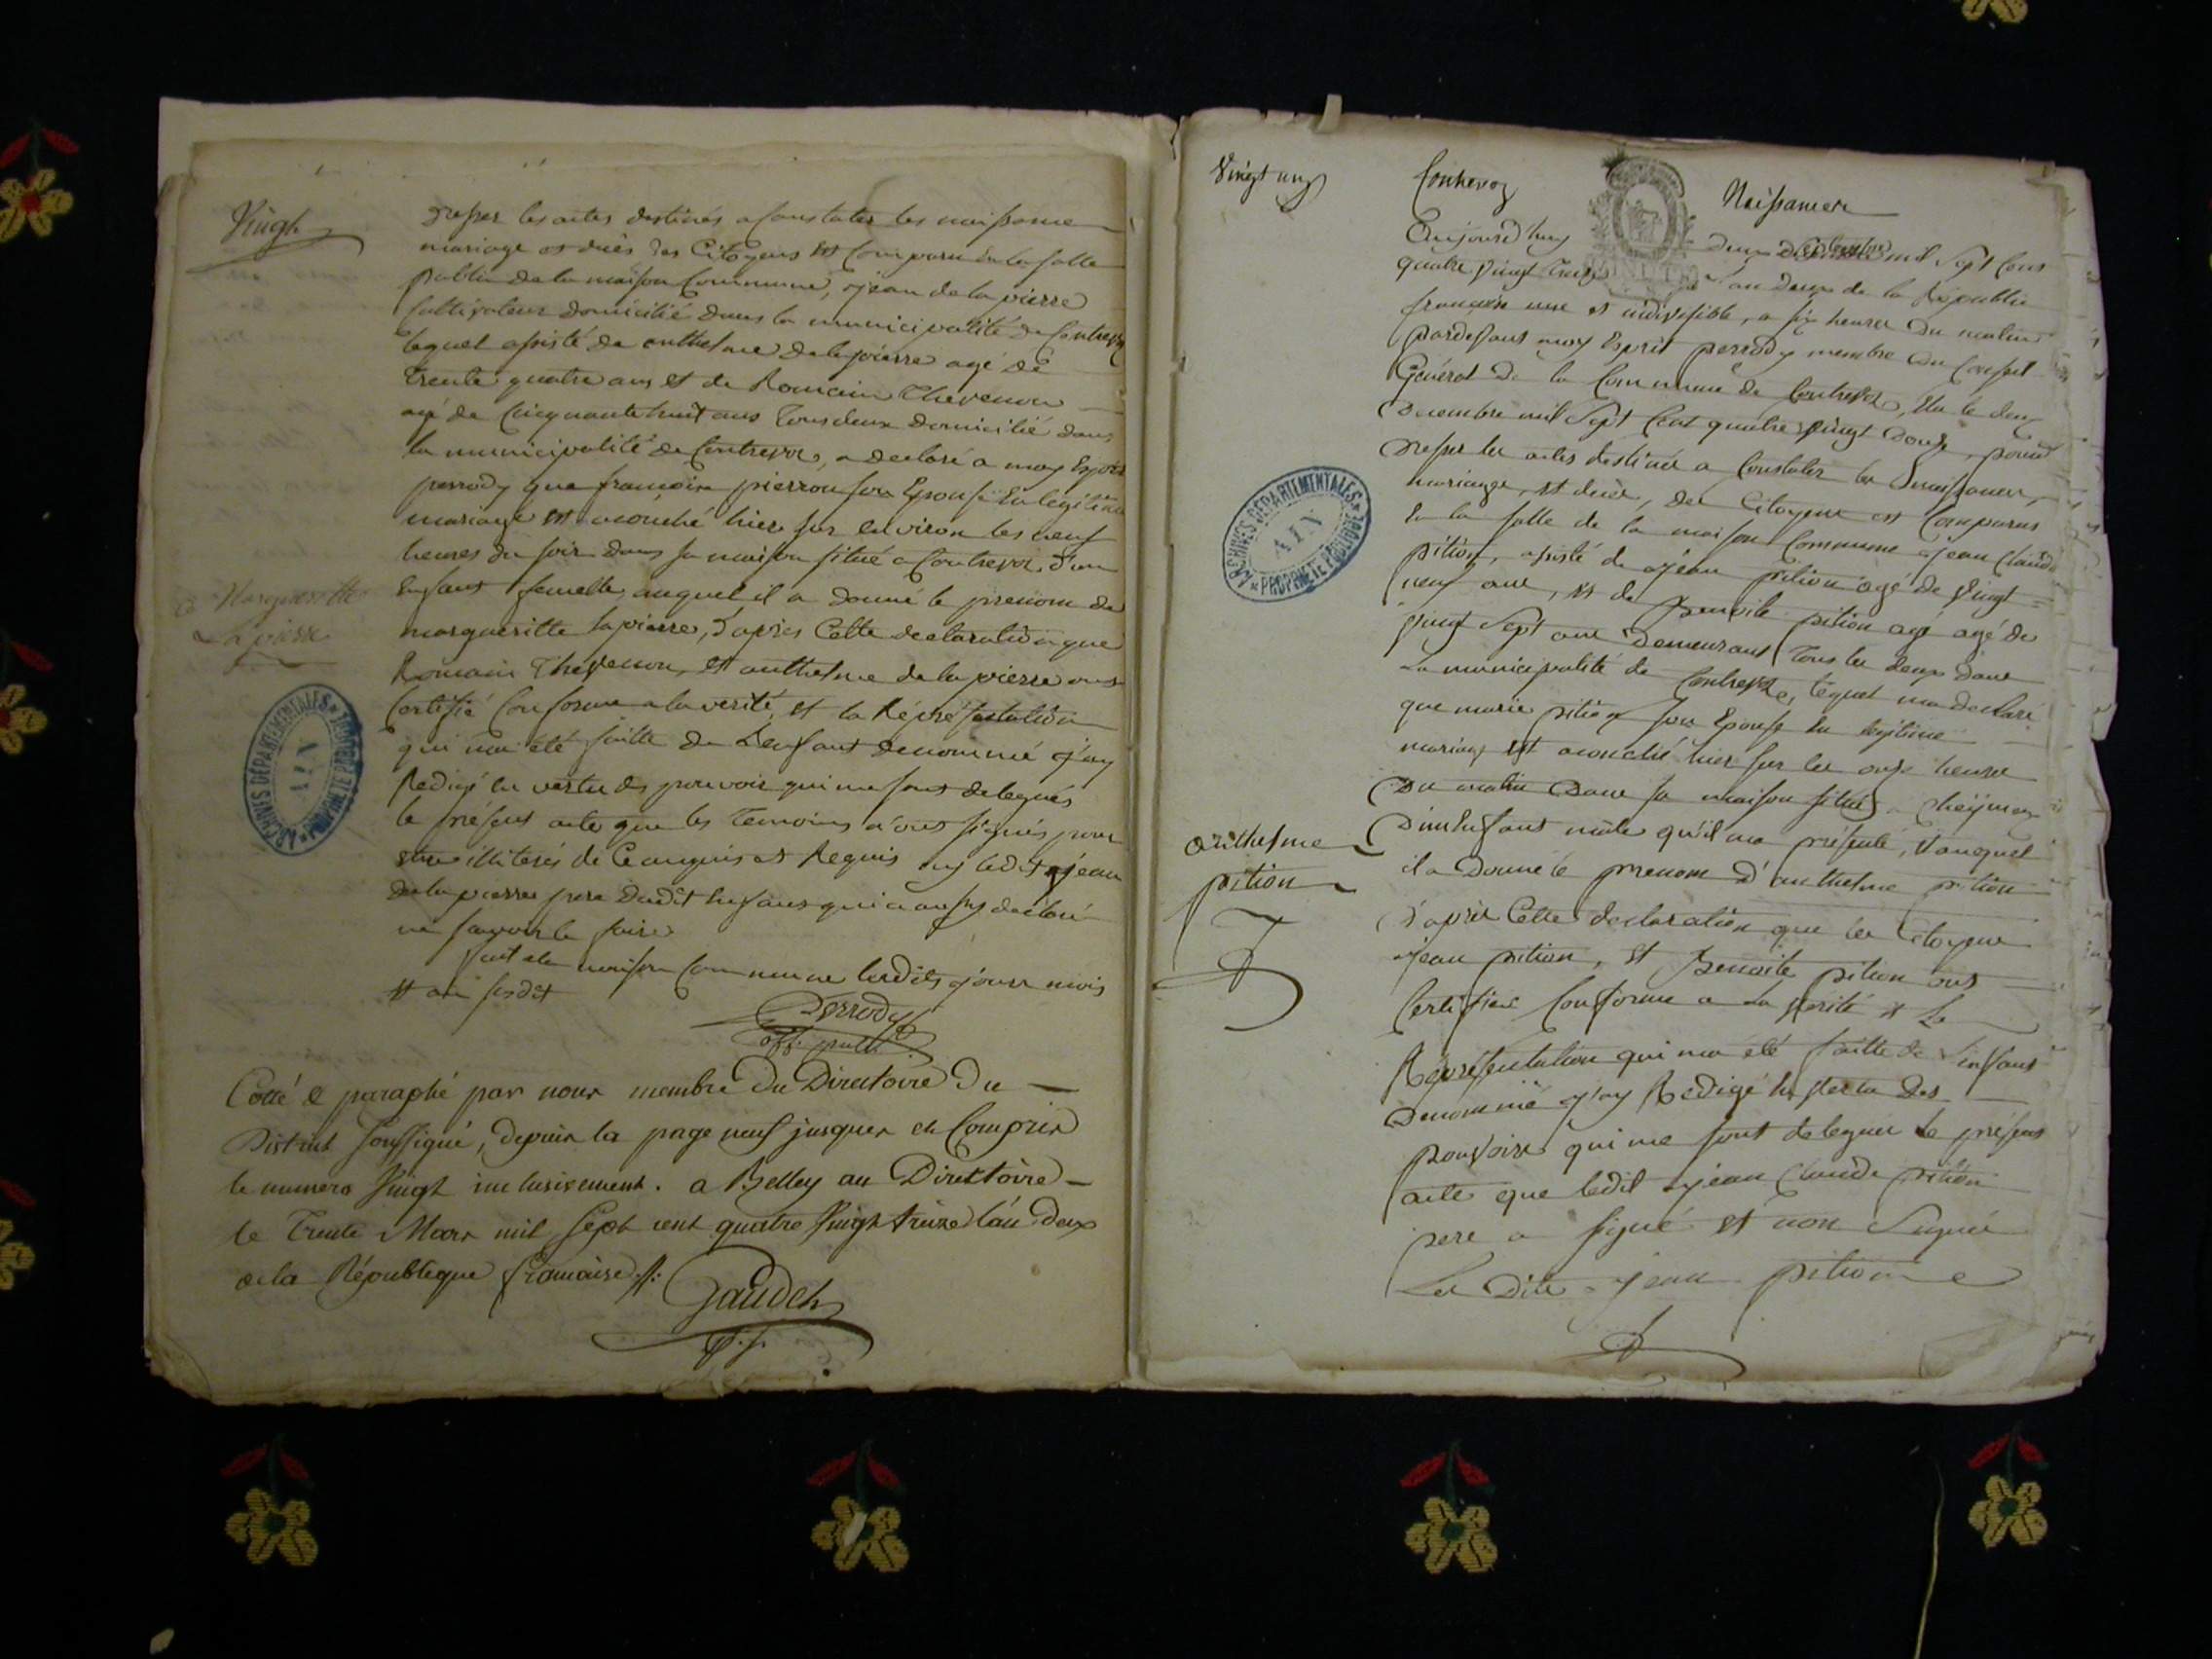 Vingt
dresser les actes destinés a Constater les naissance
mariage et décès des Citoyens est Comparu en la salle
public de la maison Commune, jean de la pierre
Cultivateur domicilié dans la municipalité de Contrevoz
lequel assisté de anthelme de la pierre agé de
trente quatre ans et de Romain Thevenon
agé de Cinquante huit ans tous deux domicilié dans
la municipalité de Contrevoz, a declaré a moy Esprit
perrody que françoise pierron son Epouse En légitime
mariage est acouché hier sur environ les neuf
heures du soir dans sa maison situé a Contrevoz d'un
Enfant femelle auquel il a donné le prenom de
margueritte lapierre, d'après Cette declaration que
Margueritte
Lapierre
Romain Thevenon, et anthelme de la pierre ont
Certifié Conforme a la verité, et la Réprésentation
qui ma été faitte de L'enfant denommé j'ay
Redigé En vertu des pouvoir qui me sont delegués
le présent acte que les temoins n'ont signés pour
etre illiterés de Ce enquis et Requis ny ledit jean
de la pierre pere dudit Enfant qui a aussy declaré
ne savoir le faire
fait en maison Commune lesdits jour mois
et an susdit
Perrody
off. public
Cotté & paraphé par nous membre du Directoire du
District soussigné, depuis la page neuf jusques et Compris
le numero Vingt inclusivement. a Belley au Directoire
le Trente Mars mil sept cent quatre Vingt treize l'an deux
de la République françaises ./.
Gaudet
ARCHIVES DÉPARTEMENTALES
AIN
PROPRIÉTÉ PUBLIQUE
Vingt un
Contrevoz
Naissances
Aujourd'huy deux Septembre mil Sept Cent
quatre vingt treize l'an deux de la République
françoise une et indivisible, a six heures du matin
pardevant moy Esprit perrody membre du Conseil
Général de la Commune de Contrevoz, Elu le deux
decembre mil Sept Cent quatre vingt douze, pour
dresser les actes destinés a Constater les naissances,
mariage, et décès, des Citoyens est Comparus
En la salle de la maison Commune jean Claude
pition, assisté de jean pition agé de vingt
neuf ans, et de Benoite pition agé agé de
vingt Sept ans demeurant tous les deux dans
La municipalité de Contrevoz, lequel ma declaré
que marie pition son Epouse En légitime
mariage est acouché hier sur les onze heures
du matin dans sa maison situé a
D'un Enfant mâle qu'il ma présenté, et auquel
il a Donné le prenom d'anthelme pition
anthelme
pition
d'après Cette declaration que les Citoyens
jean pition, et Benoite pition ont
Certifiés Conforme a La verité et La
Réprésentation qui ma été faitte de L'enfant
denommé j'ay Redigé En vertu des
pouvoirs qui me sont delegués le présent
acte que ledit jean Claude pition
pere a signé et non Signé
Le Dite jean pition
ARCHIVES DÉPARTEMENTALES
AIN
PROPRIÉTÉ PUBLIQUE